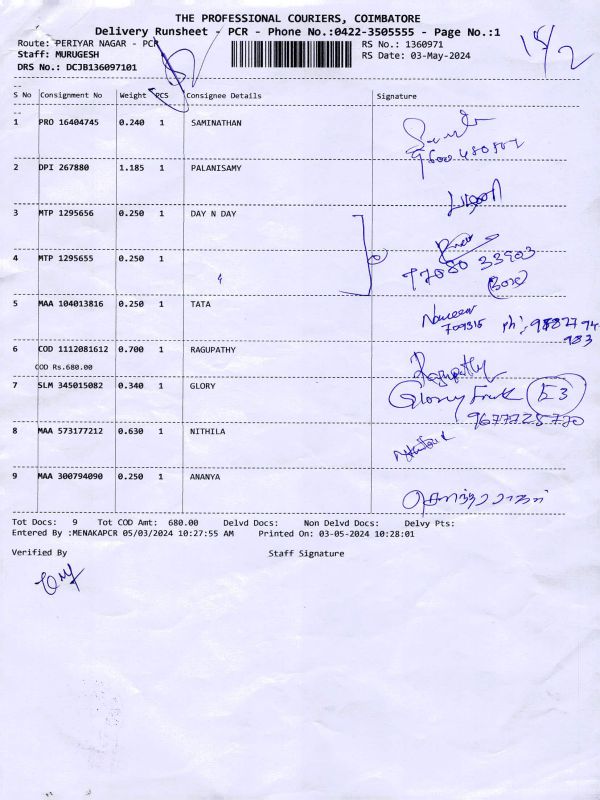 THE PROFESSIONAL COURIERS, COIMBATORE
Delivery Runsheet - PCR - Phone No.:0422-3505555 - Page No.:1
Route: PERIYAR NAGAR - PCR RS No.: 1360971
Staff: MURUGESH RS Date: 03-May-2024
DRS No.: DCJB136097101
15/2
S No Consignment No Weight PCS Consignee Details Signature
1 PRO 16404745 0.240 1 SAMINATHAN
2 DPI 267880 1.185 1 PALANISAMY
3 MTP 1295656 0.250 1 DAY N DAY
4 MTP 1295655 0.250 1
77080 33903
(Box)
5 MAA 104013816 0.250 1 TATA
Naveen
709315
6 COD 1112081612 0.700 1 RAGUPATHY Ragupathy
COD Rs.680.00
7 SLM 345015082 0.340 1 GLORY Glory E3
9677728770
8 MAA 573177212 0.630 1 NITHILA
9 MAA 300794090 0.250 1 ANANYA
Tot Docs: 9 Tot COD Amt: 680.00 Delvd Docs: Non Delvd Docs: Delvy Pts:
Entered By :MENAKAPCR 05/03/2024 10:27:55 AM Printed On: 03-05-2024 10:28:01
Verified By Staff Signature